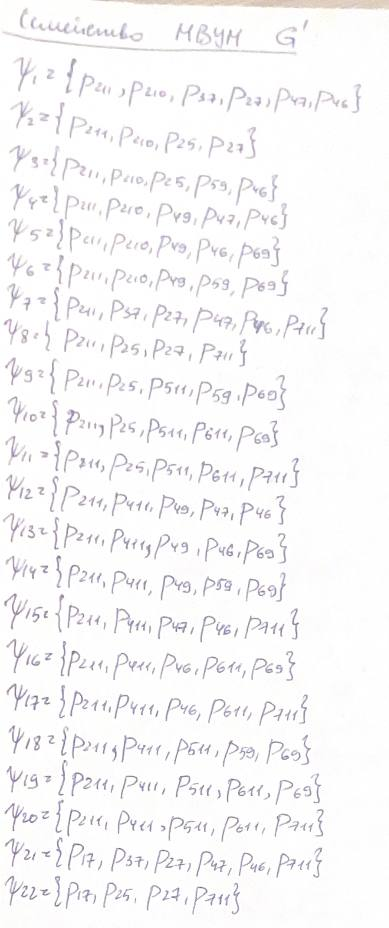 Семейство МВУМ G'
Ψ1={p211, p210, p37, p27, p47, p46}
Ψ2={p211, p210, p25, p27}
Ψ3={p211, p210, p25, p59, p46}
Ψ4={p211, p210, p49, p47, p46}
Ψ5={p211, p210, p49, p46, p69}
Ψ6={p211, p210, p49, p59, p69}
Ψ7={p211, p37, p27, p47, p46, p711}
Ψ8={p211, p25, p27, p711}
Ψ9={p211, p25, p511, p59, p69}
Ψ10={p211, p25, p511, p611, p69}
Ψ11={p211, p25, p511, p611, p711}
Ψ12={p211, p411, p49, p47, p46}
Ψ13={p211, p411, p49, p46, p69}
Ψ14={p211, p411, p49, p59, p69}
Ψ15={p211, p411, p47, p46, p711}
Ψ16={p211, p411, p46, p611, p69}
Ψ17={p211, p411, p46, p611, p711}
Ψ18={p211, p411, p511, p59, p69}
Ψ19={p211, p411, p511, p611, p69}
Ψ20={p211, p411, p511, p611, p711}
Ψ21={p17, p37, p27, p47, p46, p711}
Ψ22={p17, p25, p27, p711}